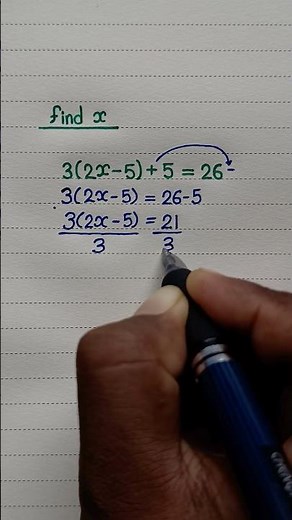 find x
3(2x-5)+5 = 26-
3(2x-5) = 26-5
3(2x-5) = 21
3 3